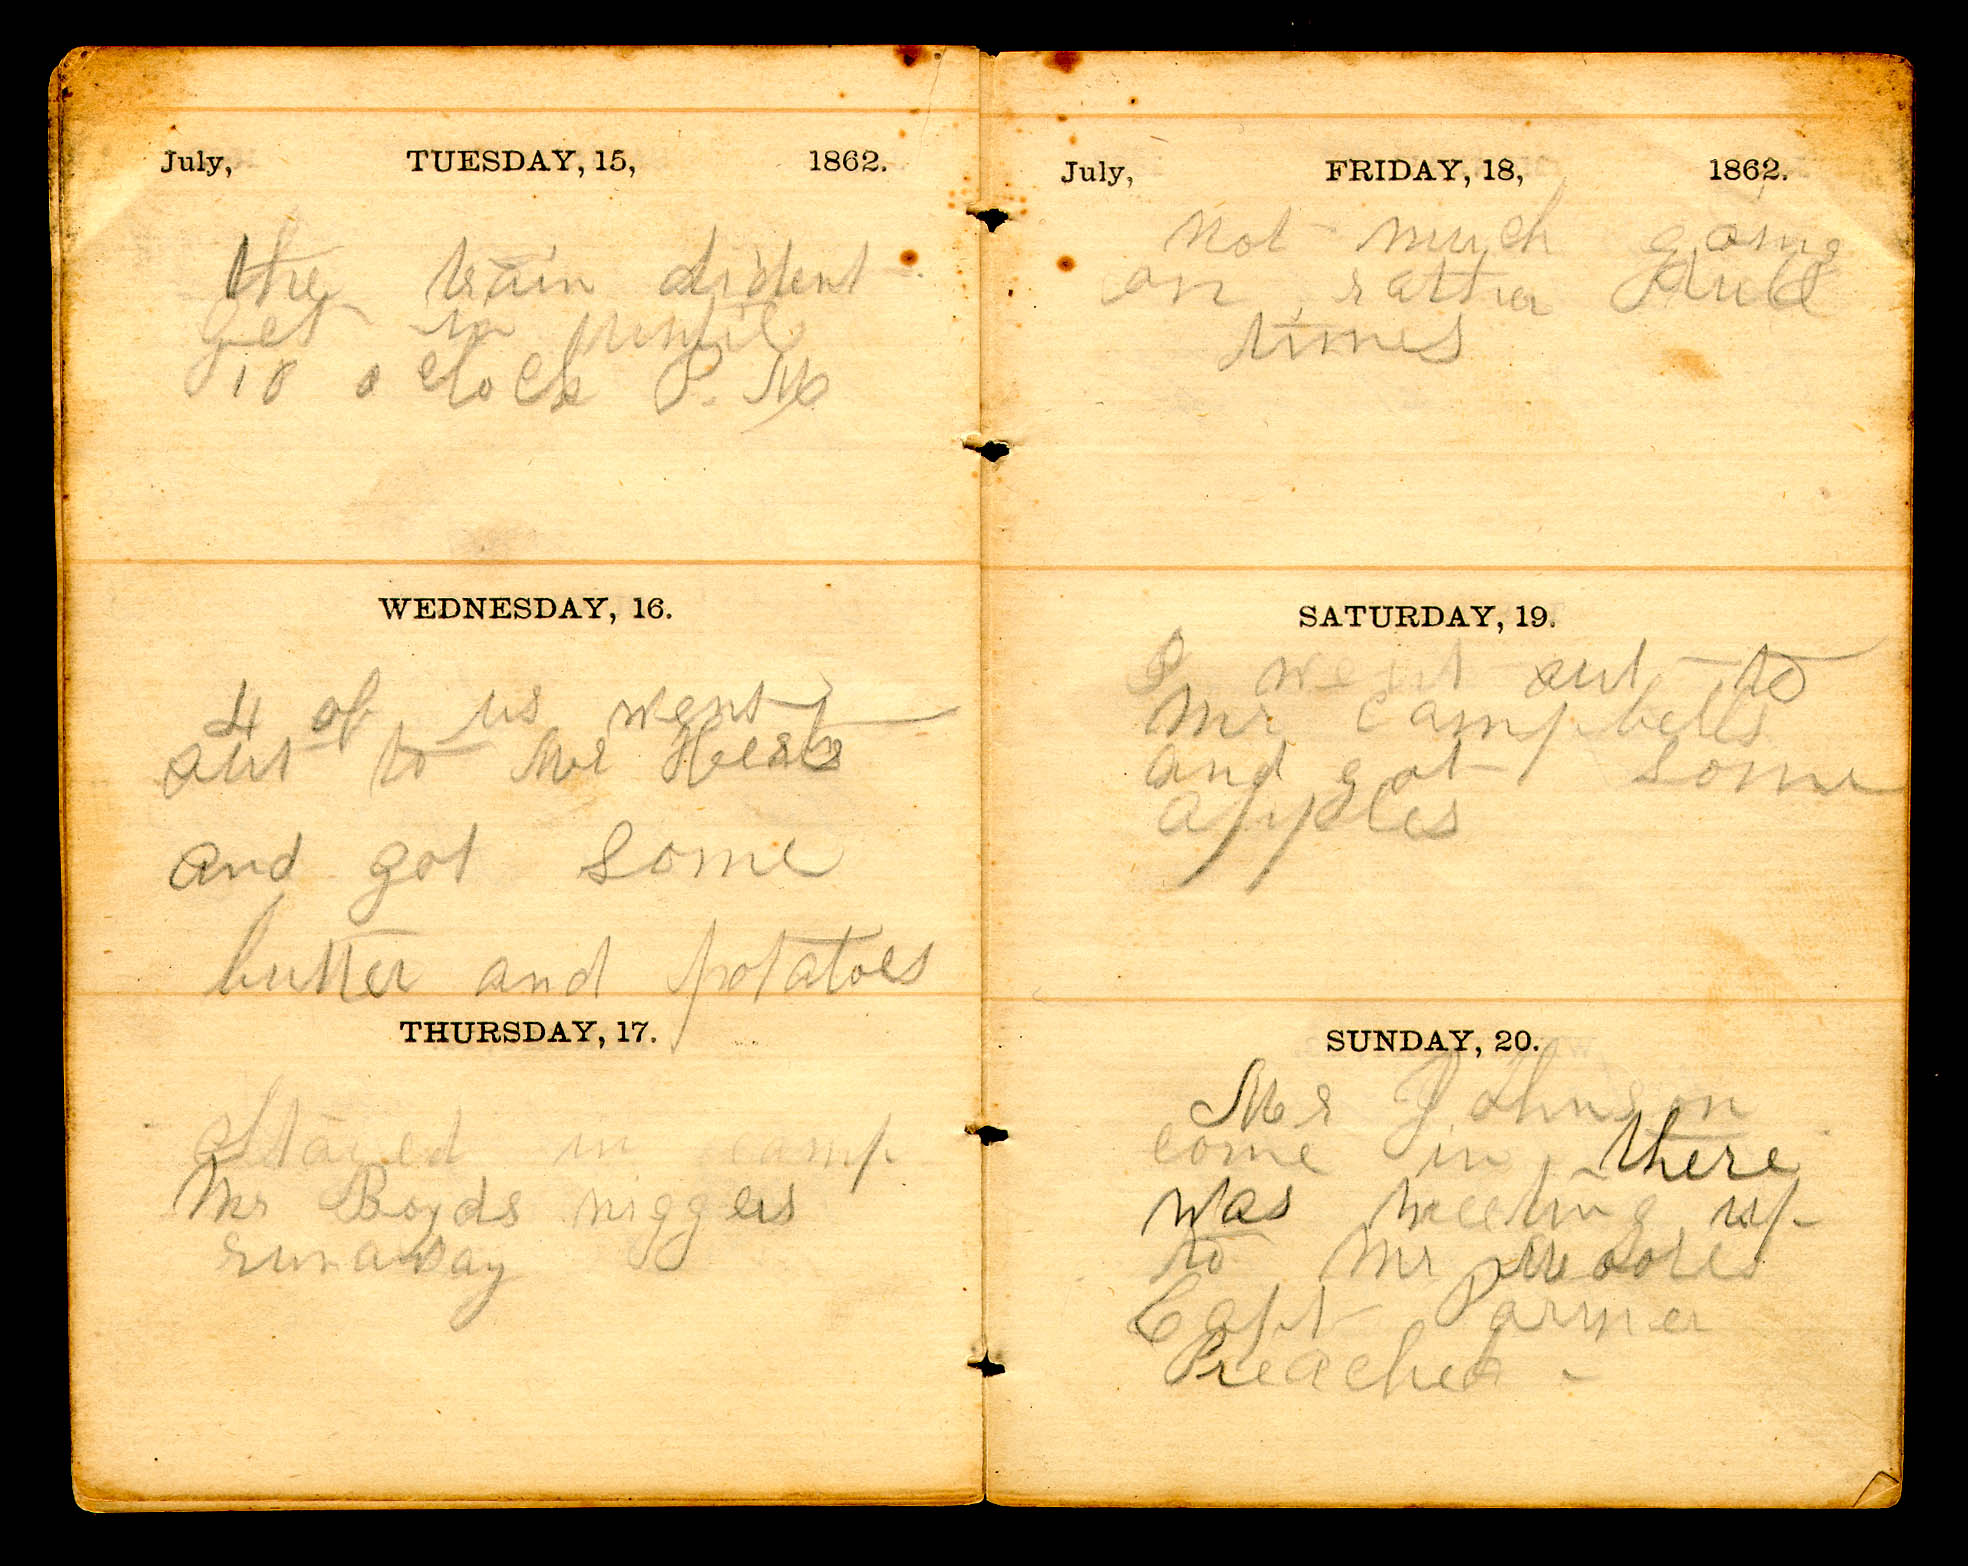 July, TUESDAY, 15, 1862.
the train dident
get in until
10 o clock P. M
WEDNESDAY, 16.
4 of us went
out to Mr
and got some
butter and potatoes
THURSDAY, 17.
Stayed in camp
Mr Boyds niggers
runaway
July, FRIDAY, 18, 1862.
not much going
on rather dull
times
SATURDAY, 19.
I went out to
Mr Campbells
and got some
apples
SUNDAY, 20.
Mr Johnson
come in there
was meeting up
to Mr Moores
Capt Parmer
Preached -